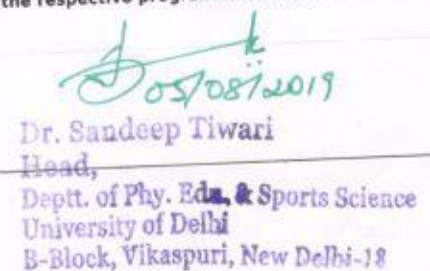 the respective program
05/08/2019
Dr. Sandeep Tiwari
Head,
Deptt. of Phy. Edn. & Sports Science
University of Delhi
B-Block, Vikaspuri, New Delhi-18